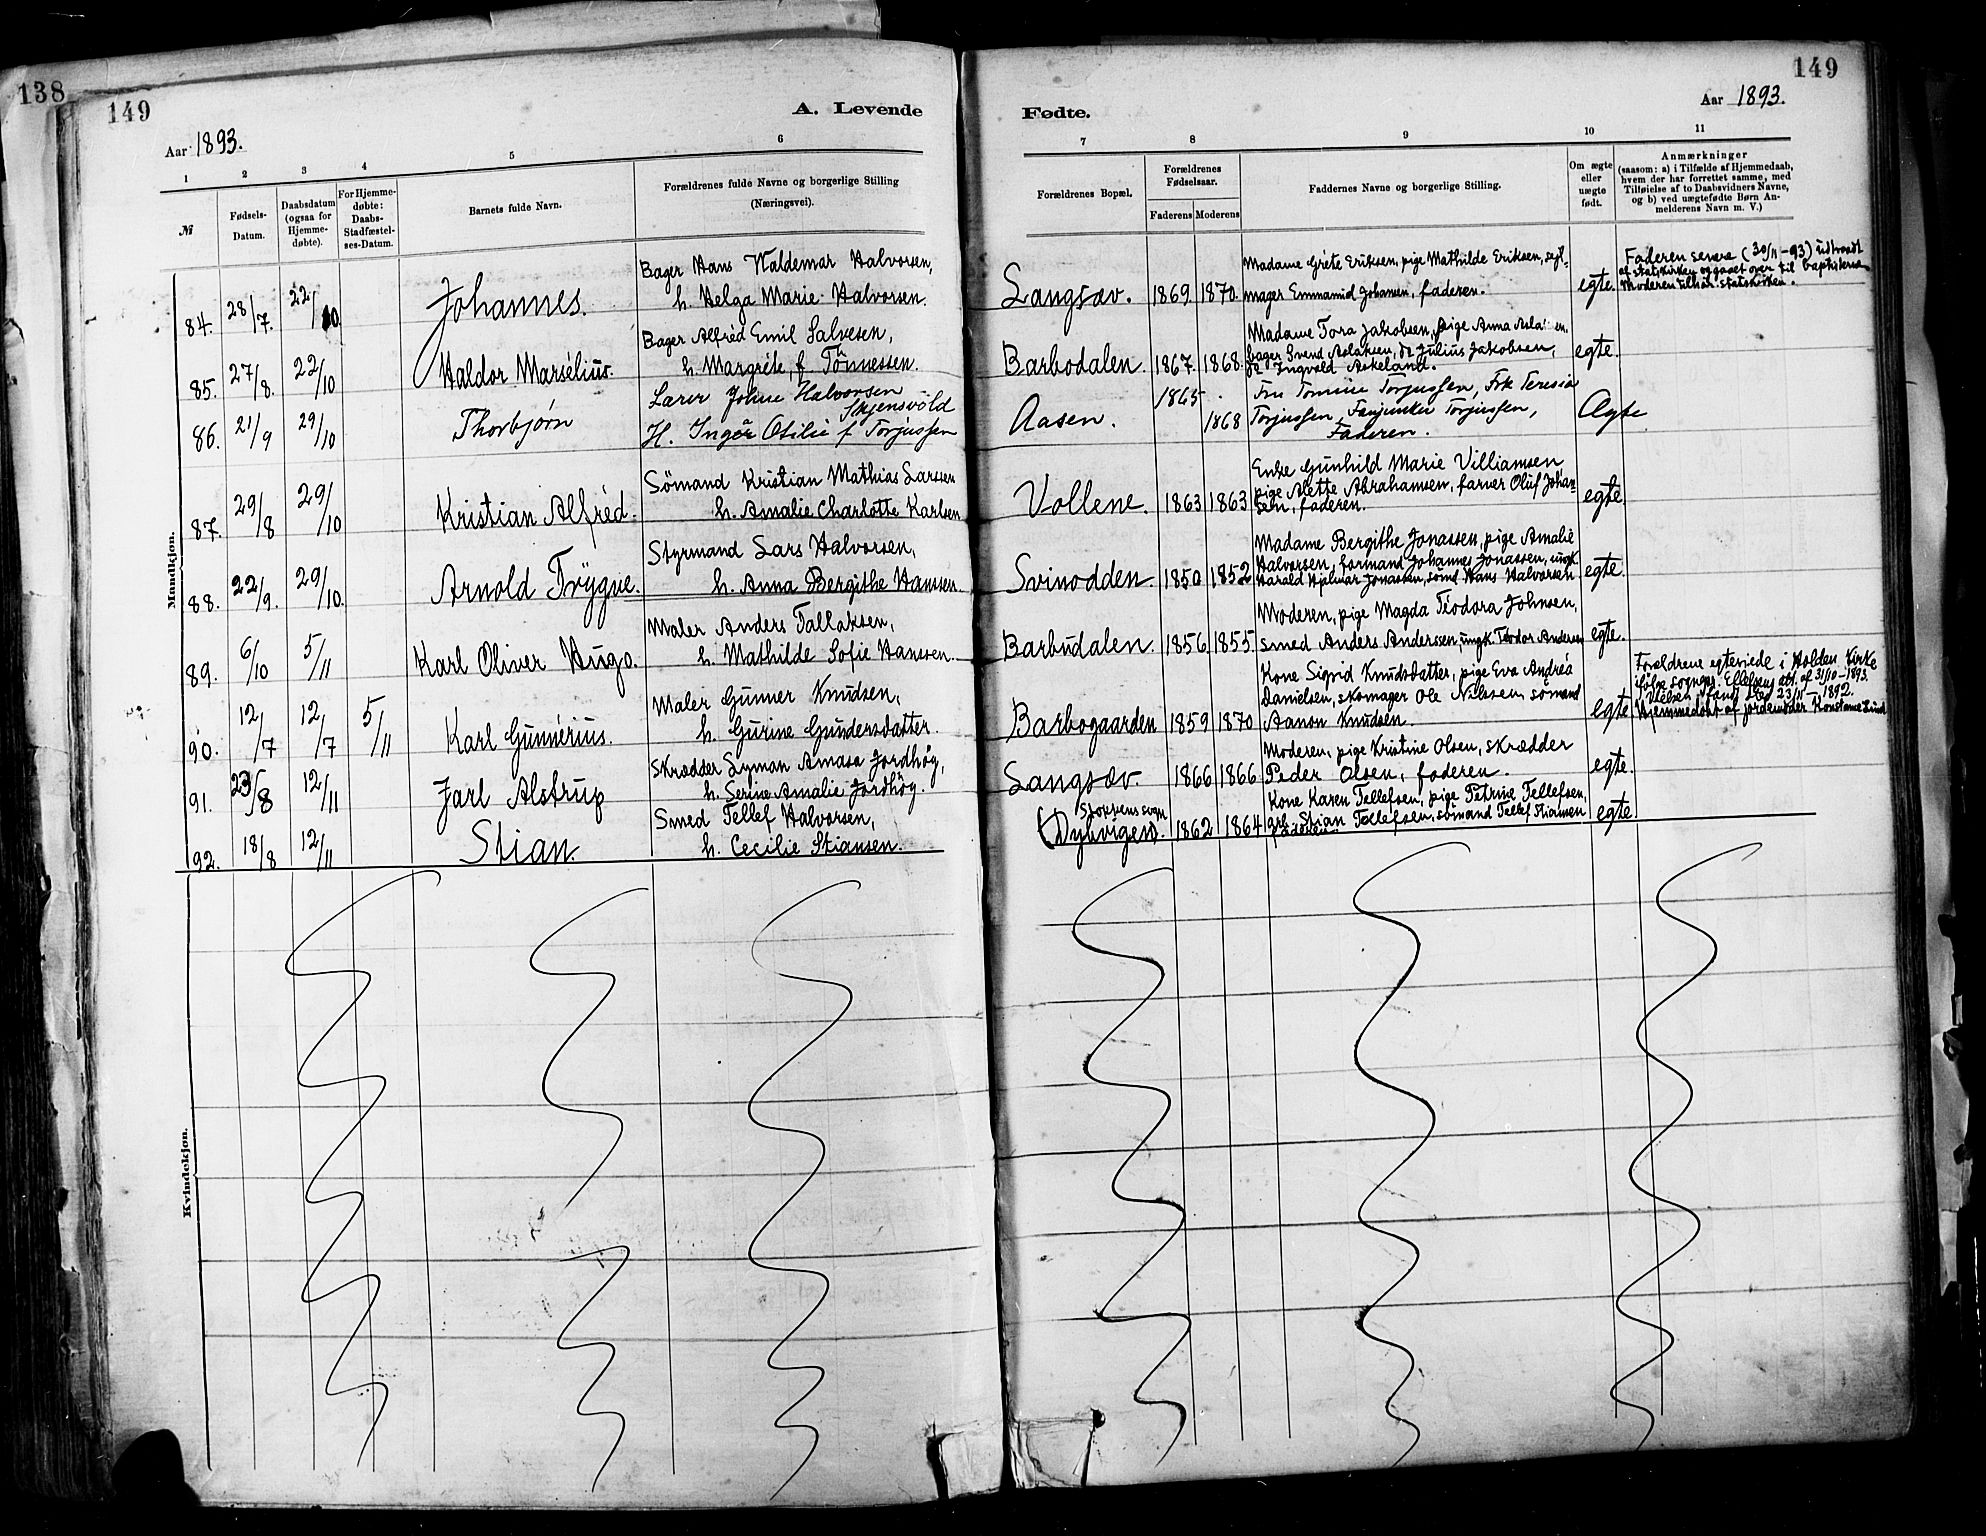 138
149
A. Levende
Aar 1893.
1 2 3 4 5 6
№
Fødsels-
Datum.
Daabsdatum
(ogsaa for
Hjemme-
døbte).
For Hjemme-
døbte:
Daabs-
Stadfæstel-
ses-Datum.
Barnets fulde Navn.
Forældrenes fulde Navne og borgerlige Stilling
(Næringsvei).
Mandkjøn.
84. 28/7. 22/10 Johannes.
Bager Hans Valdemar Halvorsen,
h. Helga Marie Halvorsen.
85. 27/8. 22/10 Haldor Marselius.
Bager Alfred Emil Salvesen,
h. Margrete, f Tönnessen.
86. 21/9 29/10 Thorbjørn
Lærer Johne Halvorsen
Skjensvöld
H. Inger Otilie f Torjussen
87. 29/8 29/10 Kristian Alfred.
Sömand Kristian Mathias Larssen
h. Amalie Charlotte Karlsen
88. 22/9. 29/10. Arnold Trygve.
Styrmand Lars Halvorsen,
h. Anna Bergithe Hanssen.
89. 6/10 5/11 Karl Oliver Hugo.
Maler Anders Tallaksen,
h. Mathilde Sofie Hanssen.
90. 12/7 12/7 5/11 Karl Gunnerius.
Maler Gunner Knudsen,
h. Gurine Gundersdatter.
91. 23/8 12/11 Jarl Alstrup
Skrædder Lyman Amasa Jordhög,
h. Serine Amalie Jordhög.
92. 18/8 12/11 Stian.
Smed Tellef Halvorsen,
h. Cecilie Stiansen.
Kvindekjøn.
149
Fødte.
Aar 1893.
7 8 9 10 11
Forældrenes Bopæl.
Forældrenes
Fødselsaar.
Faderens Moderens
Faddernes Navne og borgerlige Stilling.
Om ægte
eller
uægte
født.
Anmærkninger
(saasom: a) i Tilfælde af Hjemmedaab,
hvem der har forrettet samme, med
Tilføielse af to Daabsvidners Navne,
og b) ved uægtefødte Børn An-
melderens Navn m. V.)
Langsæv. 1869 1870.
Madame Grete Eriksen, pige Mathilde Eriksen, seil-
mager Johansen, faderen.
egte.
Faderen senere (30/11-93) udtraadt
af statskirken og gaaet over til baptisterne
Moderen tilhör statskirken.
Barbodalen. 1867 1868.
Madame Tora Jakobsen, pige Anna
bager Svend Aslaksen, do Julius Jakobsen,
do Ingvald Askeland.
egte.
Aasen. 1865 1868
Fru Tomine Torjussen, Frk Teresia
Torjussen, Fanjunker Torjussen,
Faderen.
Ægte
Vollene. 1863 1863
Enke Gunhild Marie Villiamsen
pige Alette Abrahamsen, farver Oluf Johan-
sen, faderen.
egte.
Svinodden. 1850 1852
Madame Bergithe Jonassen, pige Amalie
Halvorsen, formand Johannes Jonassen, ungk.
Harald Hjelmar Jonassen, sömd Hans Halvorsen
egte.
Barbudalen. 1856 1855
Moderen, pige Magda Teodora Johnsen,
smed Anders Anderssen, ungk. Teodor Andersen
egte.
Barbogaarden 1859 1870
Kone Sigrid Knudsdatter, pige Eva Andrea
Danielsen, skomager Ole Nilssen, sömand
Aanon Knudsen.
egte
Forældrene egteviede i Holden Kirke
ifölge sognepr. Ellefsens att. af 31/10-1893.
Vielsen fandt sted 23/11-1892.
Hjemmedöbt af jordemoder Konstanse Lund
Langsæv. 1866 1866
Moderen, pige Kristine Olsen, skrædder
Peder Olsen, faderen.
egte.
Stokkens sogn
(Dybvigen). 1862 1864
Kone Karen Tellefsen, pige Petrine Tellefsen,
Stian Tellefsen, sömand Tellef Stiansen
faderen.
egte